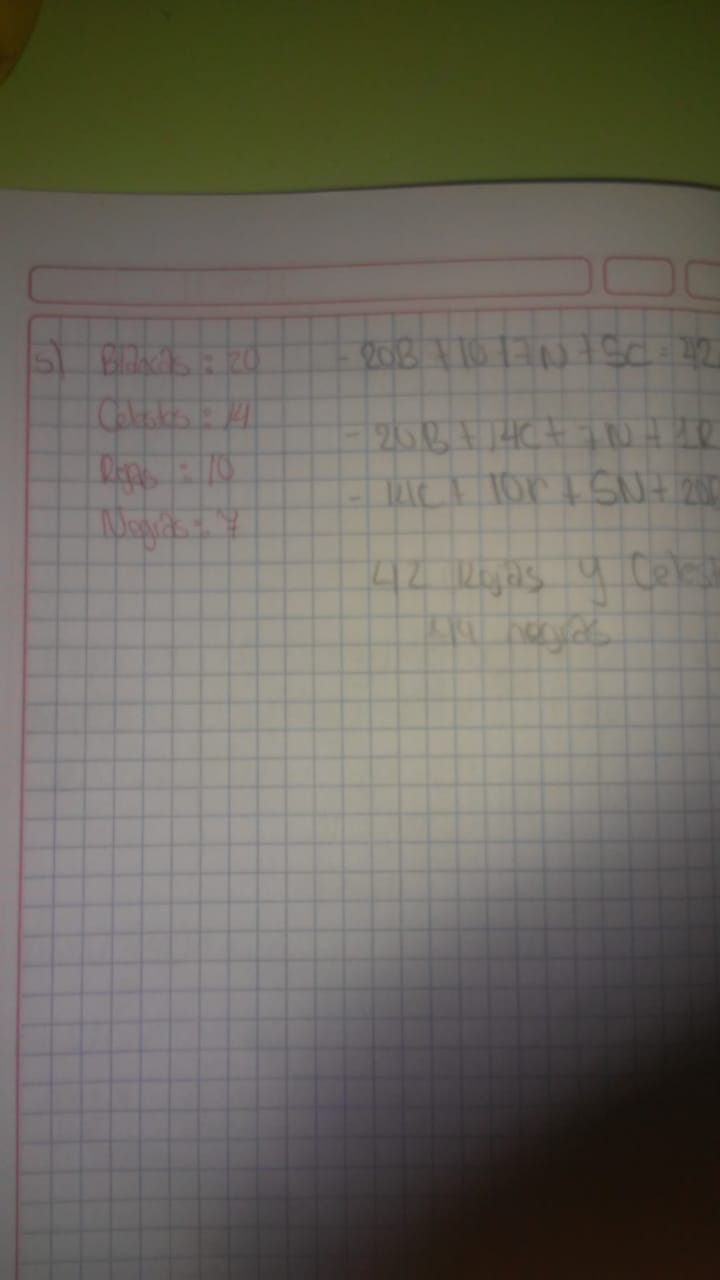 5) Blancas : 20
Celestes : 14
Rojas : 10
Negras : 7
- 20B + 10 + 7N + 5C = 42
- 20B + 14C + 7N + 1R
- 14C + 10r + 5N + 20
42 Rojas y Celest
44 negras